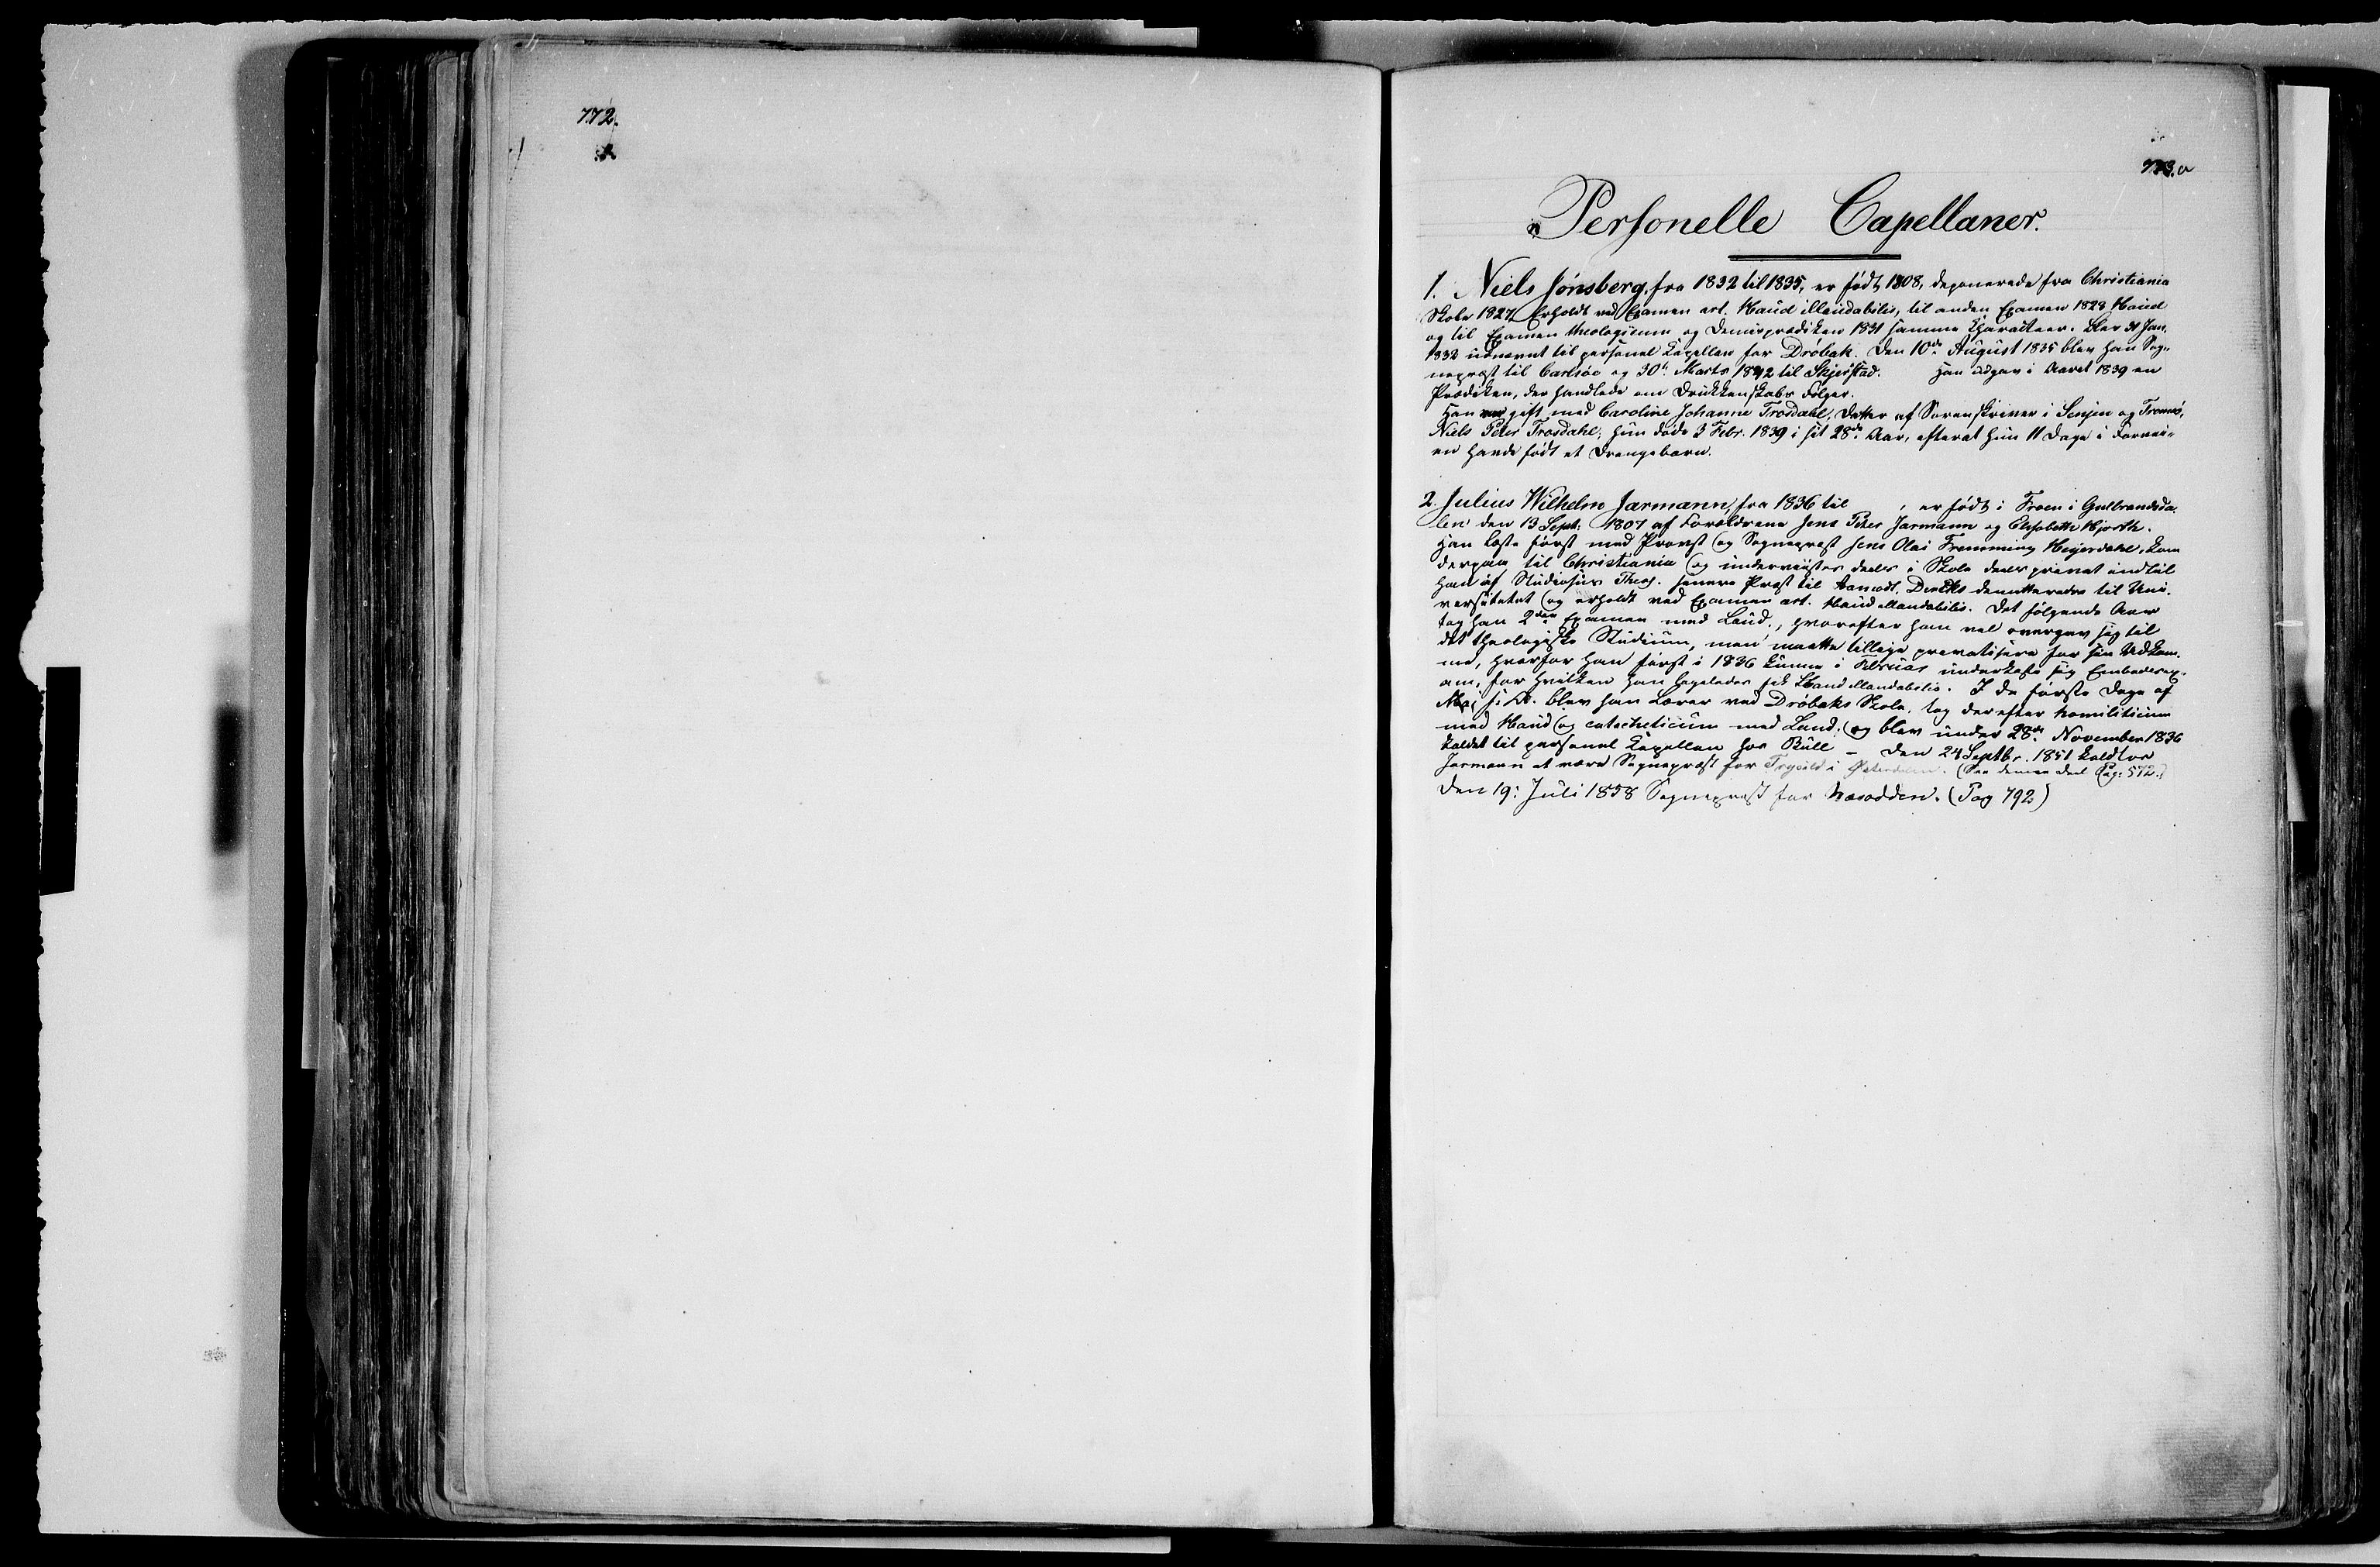 772.
773.a
Personelle Capellaner.
1. Niels Jønsberg, fra 1832 til 1835, er født 1808, deponerede fra Christiania
Skole 1827, Erholdt ved Examen art. Haud illaudabilis, til anden Examen 1828 Haud
og til Examen theologicum og Demisprædiken 1831 samme Charakteer. Blev 31 Jan.
1832 udnævnt til personel Kapellan for Drøbak. Den 10de August 1835 blev han Sog-
nepræst til Carlsøe og 30te Marts 1842 til Skjerstad. Han udgav i Aaret 1839 en
Prædiken, der handlede om Drukkenskabs Følger.
Han var gift med Caroline Johanne Trosdahl, Datter af Sorenskriver i Senjen og Tromsø,
Niels Peter Trosdahl; hun døde 3 Febr. 1839 i sit 28de Aar, efterat hun 11 Dage i Forvei-
en havde født et Drengebarn.
2. Julius Wilhelm Jarmann, fra 1836 til , er født i Froen i Gulbrandsda-
len den 13 Sept: 1807 af Forældrene Jens Peter Jarmann og Elisabeth Hjorth.
Han læste først med Provst og Sognepræst Jens Olai Fremming Heyerdahl, kom
derpaa til Christiania og underviistes deels i Skole deels privat indtil
han af Studiosus Theol. senere Præst til Aamodt, Diriks demitteredes til Uni-
versitetet og erholdt ved Examen art. Haud illaudabilis. Det følgende Aar
tog han 2den Examen med Laud., hvorefter han vel overgav sig til
det theologiske Studium, men maatte tillige privatisere for sin Udkom-
me, hvorfor han først i 1836 kunne i Februar underkaste sig Embedsex-
am, for hvilken han ligeledes fik Haud illaudabilis. I de første Dage af
Maj s. A. blev han Lærer ved Drøbaks Skole, tog derefter homileticum
med Haud og catecheticum med Laud; og blev under 28de November 1836
kaldet til personel Kapellan hos Bull – den 24 Septbr. 1851 kaldtes
Jarmann at være Sognepræst for Trysild i Østerdalen. (See denne deel Pag: 572.)
Den 19: Juli 1858 Sognepræst for Næsodden. (Pag 792)